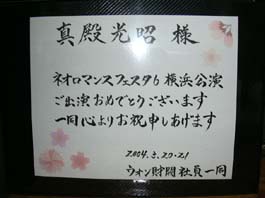 真殿光昭 様
ネオロマンスフェスタ6 横浜公演
ご出演おめでとうございます
一同心よりお祝申しあげます
2004.3.20.21
ウォン財閥社員一同